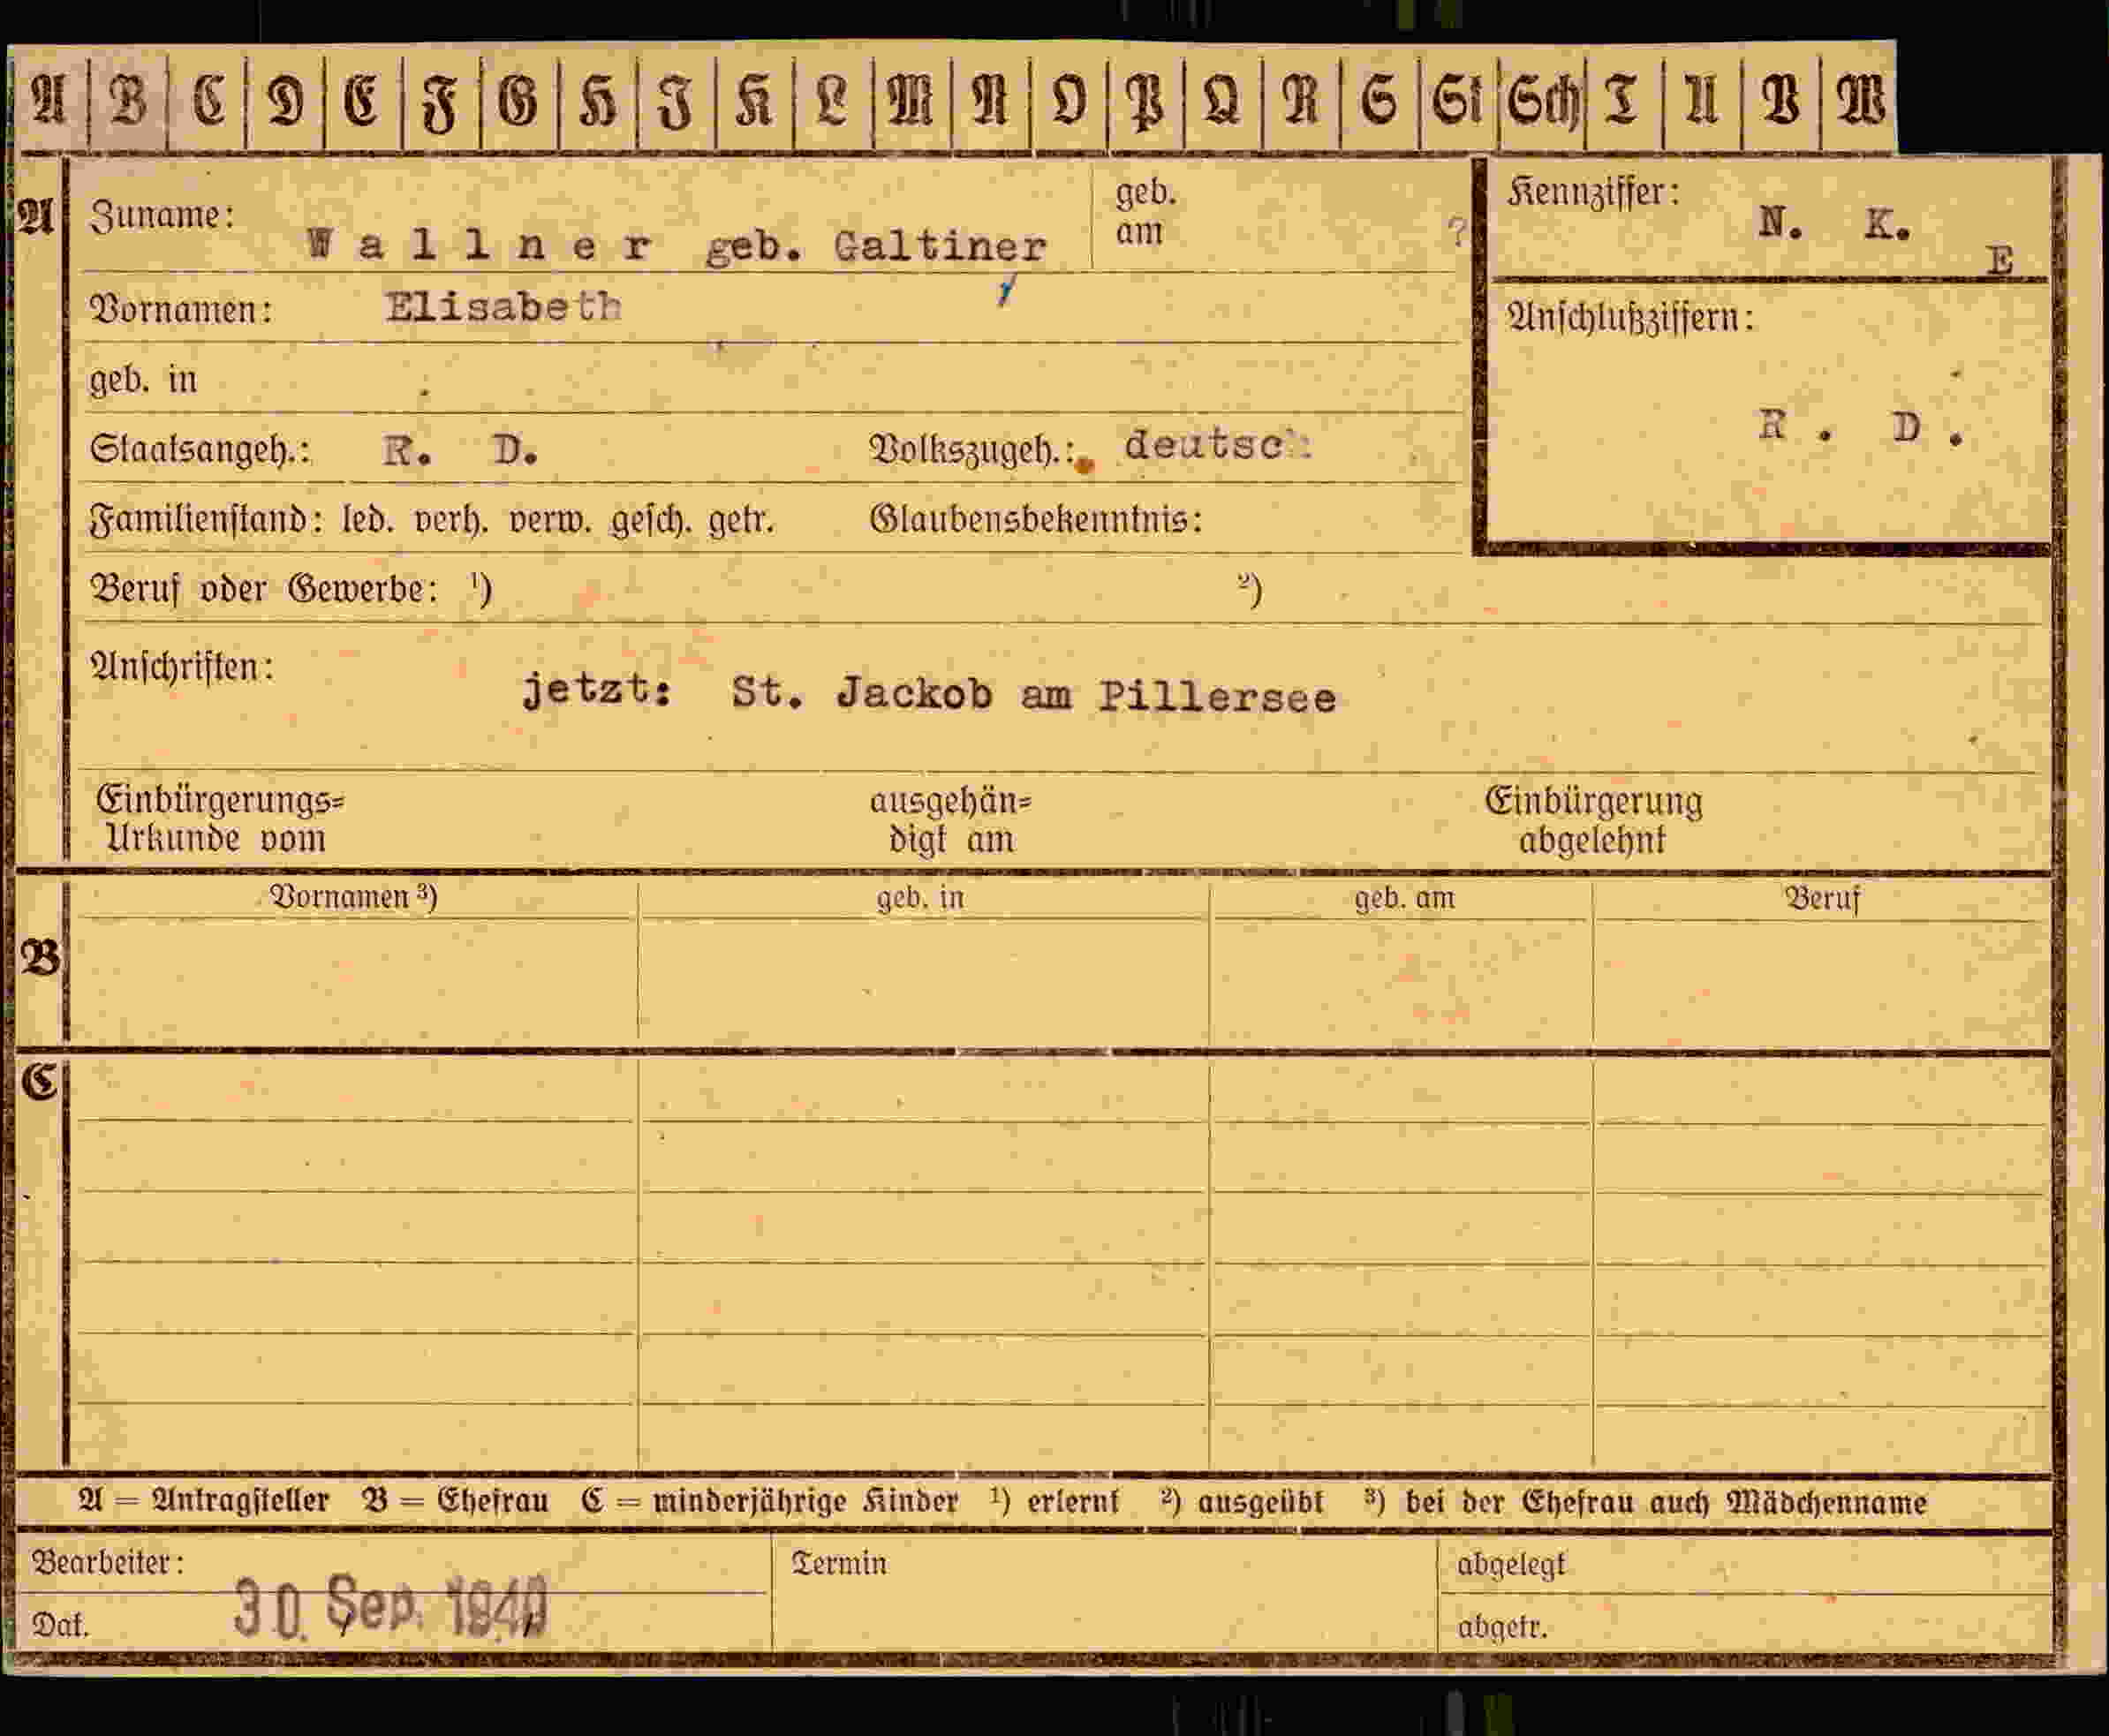 A B C D E F G H J K L M N O P Q R S St Sch T U V W
A
Zuname: Wallner geb. Galtiner
geb.
am ?
Kennziffer: N. K. E
Vornamen: Elisabeth
Anschlußziffern:
R. D.
geb. in
Staatsangeh.: R. D. Volkszugeh.: deutsch
Familienstand: led. verh. verw. gesch. getr. Glaubensbekenntnis:
Beruf oder Gewerbe: ¹) ²)
Anschriften: jetzt: St. Jackob am Pillersee
Einbürgerungs= ausgehän= Einbürgerung
Urkunde vom digt am abgelehnt
B
Vornamen ³) geb. in geb. am Beruf
C
A = Antragsteller B = Ehefrau C = minderjährige Kinder ¹) erlernt ²) ausgeübt ³) bei der Ehefrau auch Mädchenname
Bearbeiter: Termin abgelegt
Dat. 30. Sep. 1940 abgetr.